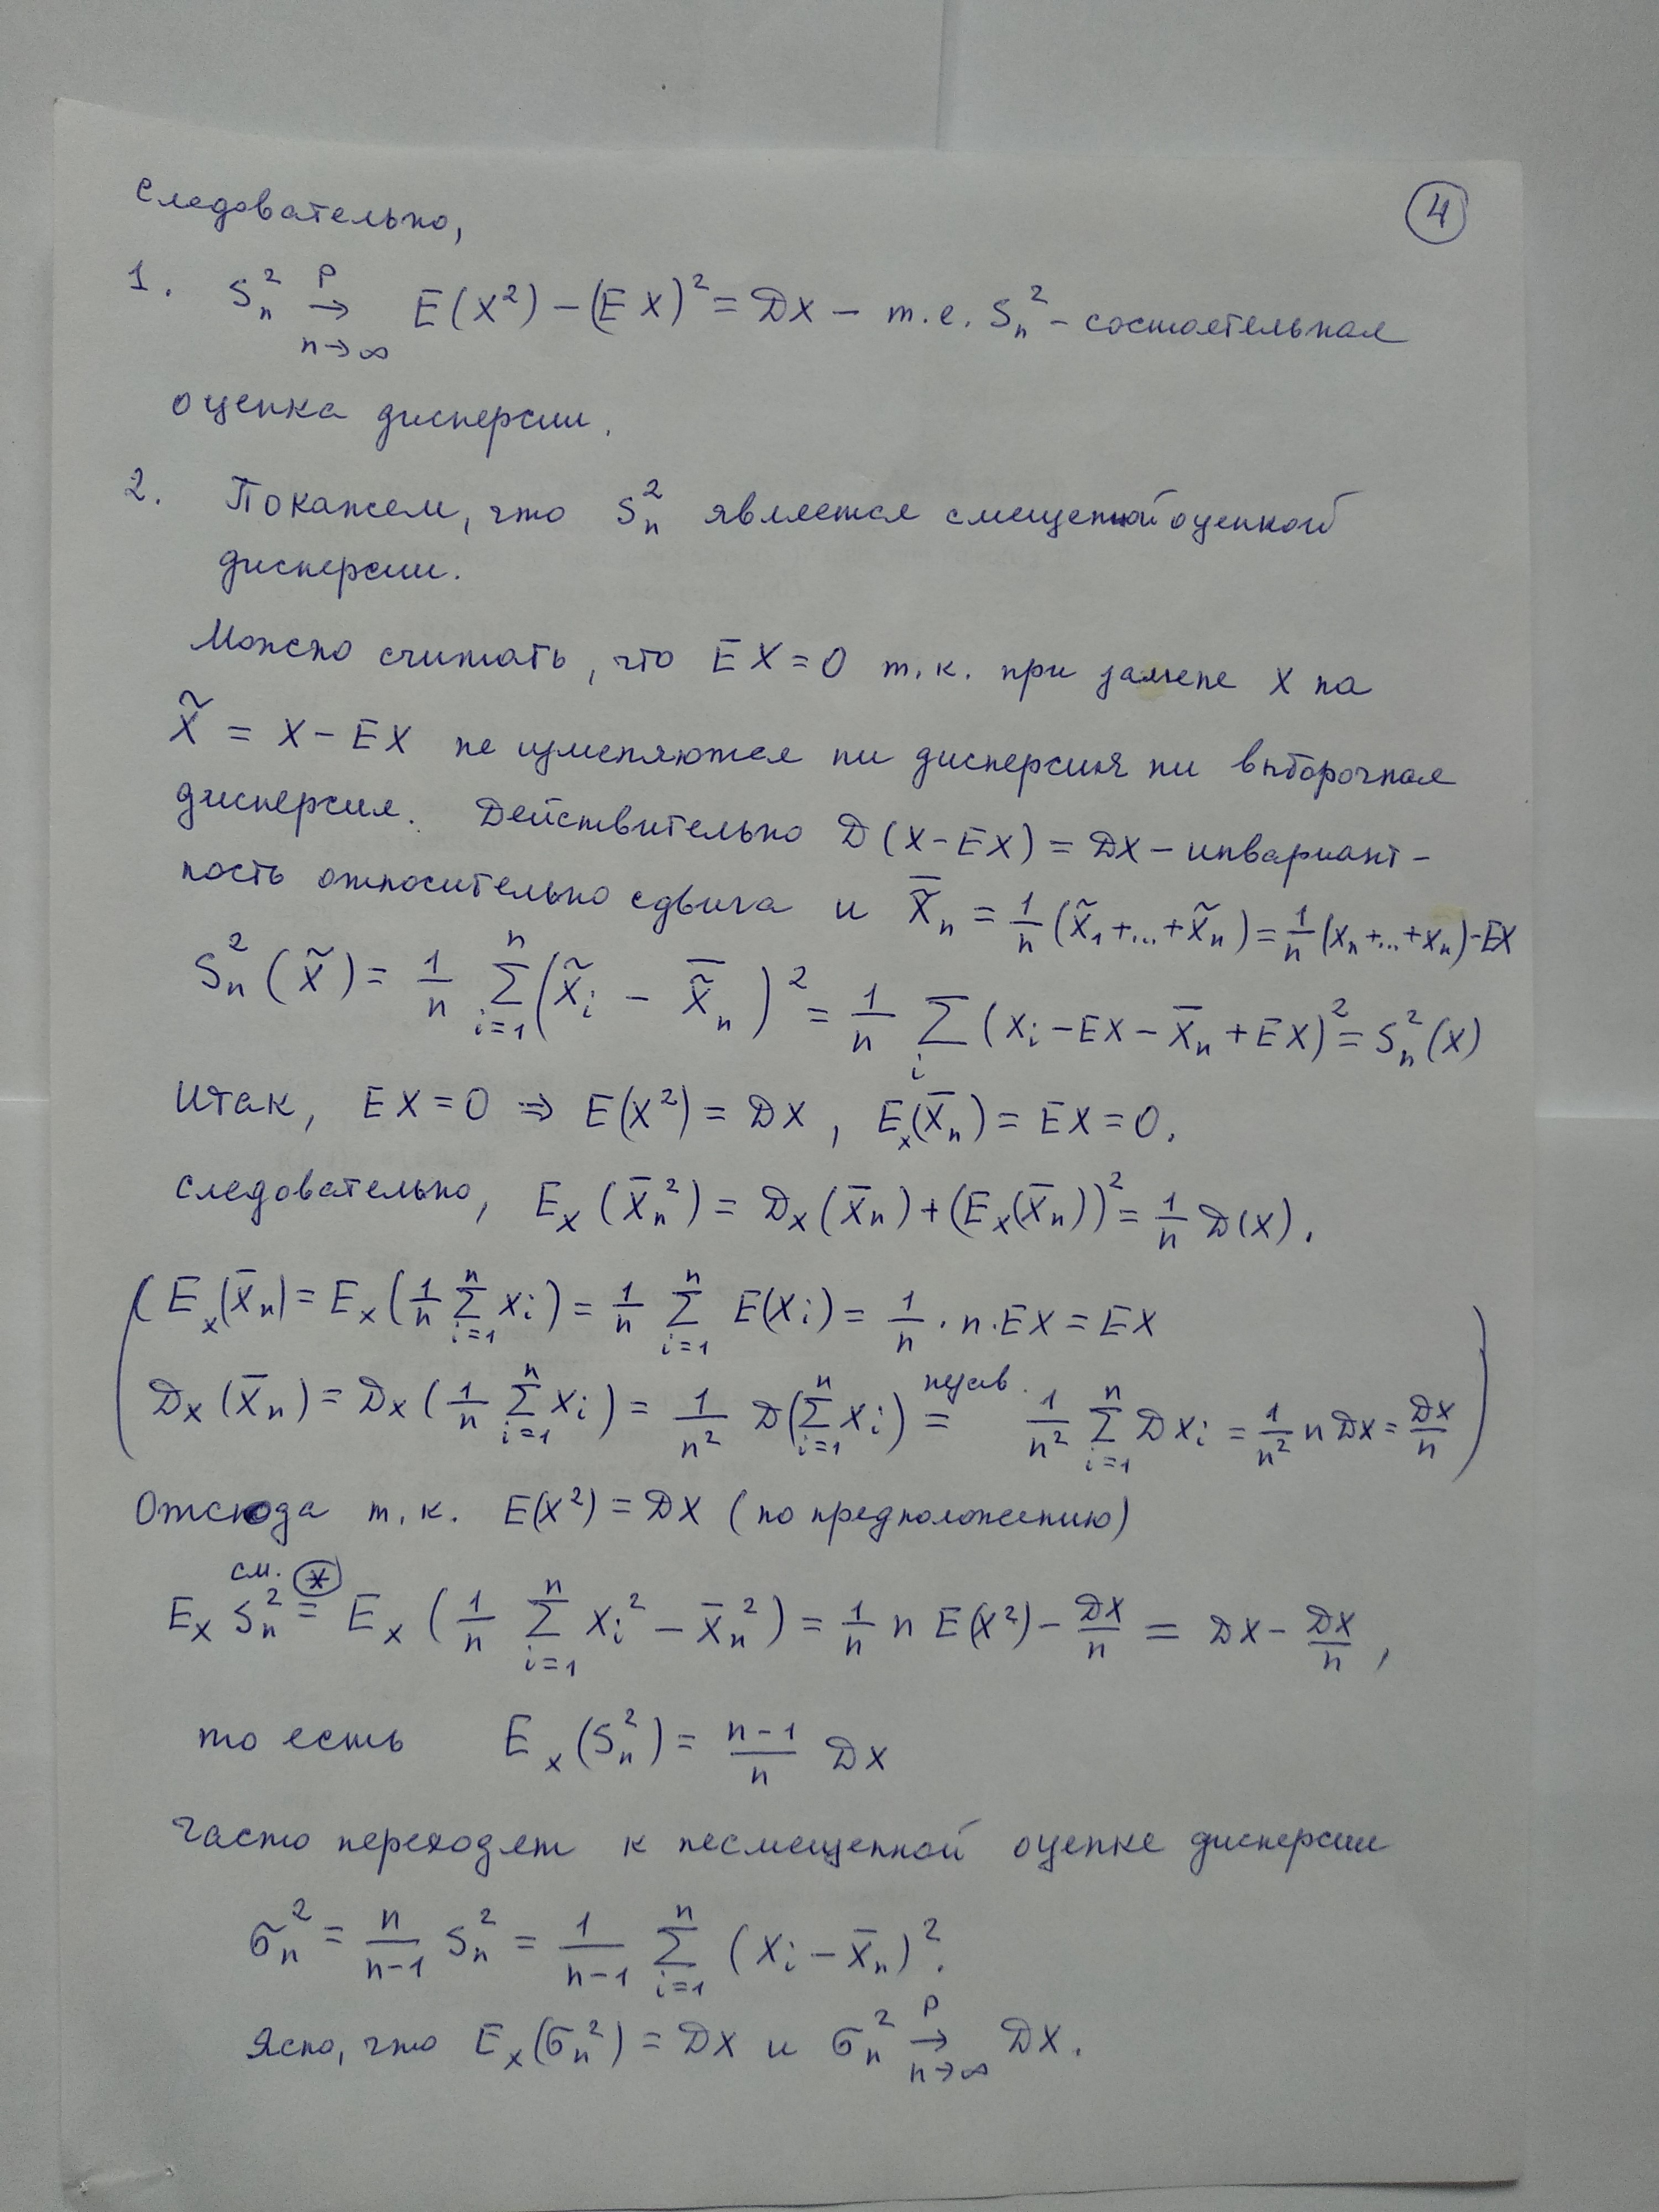 Следовательно,
4
1. Sₙ² →ᴾ n→∞ E(X²) − (EX)² = DX − т.е. Sₙ² − состоятельная
оценка дисперсии.
2. Покажем, что Sₙ² является смещенной оценкой
дисперсии.
Можно считать, что EX = 0 т.к. при замене X на
X̃ = X − EX не изменяются ни дисперсия ни выборочная
дисперсия. Действительно D(X − EX) = DX − инвариант-
ность относительно сдвига и X̃̄ₙ = 1/n (X̃₁ + ... + X̃ₙ) = 1/n (Xₙ + ... + Xₙ) − EX
Sₙ²(X̃) = 1/n Σᵢ₌₁ⁿ (X̃ᵢ − X̃̄ₙ)² = 1/n Σᵢ (Xᵢ − EX − X̄ₙ + EX)² = Sₙ²(X)
Итак, EX = 0 ⇒ E(X²) = DX, Eₓ(X̄ₙ) = EX = 0.
Следовательно, Eₓ(X̄ₙ²) = Dₓ(X̄ₙ) + (Eₓ(X̄ₙ))² = 1/n D(X).
(Eₓ(X̄ₙ) = Eₓ(1/n Σᵢ₌₁ⁿ Xᵢ) = 1/n Σᵢ₌₁ⁿ E(Xᵢ) = 1/n · n · EX = EX
Dₓ(X̄ₙ) = Dₓ(1/n Σᵢ₌₁ⁿ Xᵢ) = 1/n² D(Σᵢ₌₁ⁿ Xᵢ) = незав. 1/n² Σᵢ₌₁ⁿ DXᵢ = 1/n² n DX = DX/n)
Отсюда т.к. E(X²) = DX (по предположению)
Eₓ Sₙ² = см. (*) Eₓ(1/n Σᵢ₌₁ⁿ Xᵢ² − X̄ₙ²) = 1/n n E(X²) − DX/n = DX − DX/n,
то есть Eₓ(Sₙ²) = (n−1)/n DX
Часто переходят к несмещенной оценке дисперсии
σₙ² = n/(n−1) Sₙ² = 1/(n−1) Σᵢ₌₁ⁿ (Xᵢ − X̄ₙ)².
Ясно, что Eₓ(σₙ²) = DX и σₙ² →ᴾ n→∞ DX.